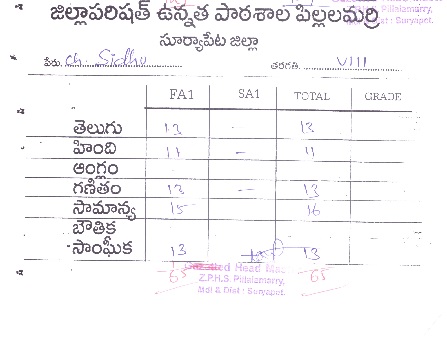 జిల్లాపరిషత్ ఉన్నత పాఠశాల పిల్లలమర్రి
సూర్యాపేట జిల్లా
Pillalamarry,
Dist : Suryapet.
పేరు. ch. Sidhu తరగతి. VIII
FA1 SA1 TOTAL GRADE
తెలుగు 13 - 13
హింది 11 - 11
ఆంగ్లం
గణితం 13 - 13
సామాన్య 15 16
బౌతిక
సాంఘీక 13 13
Head
65 Z.P.H.S. Pillalamarry, 65
Mdl & Dist : Suryapet.